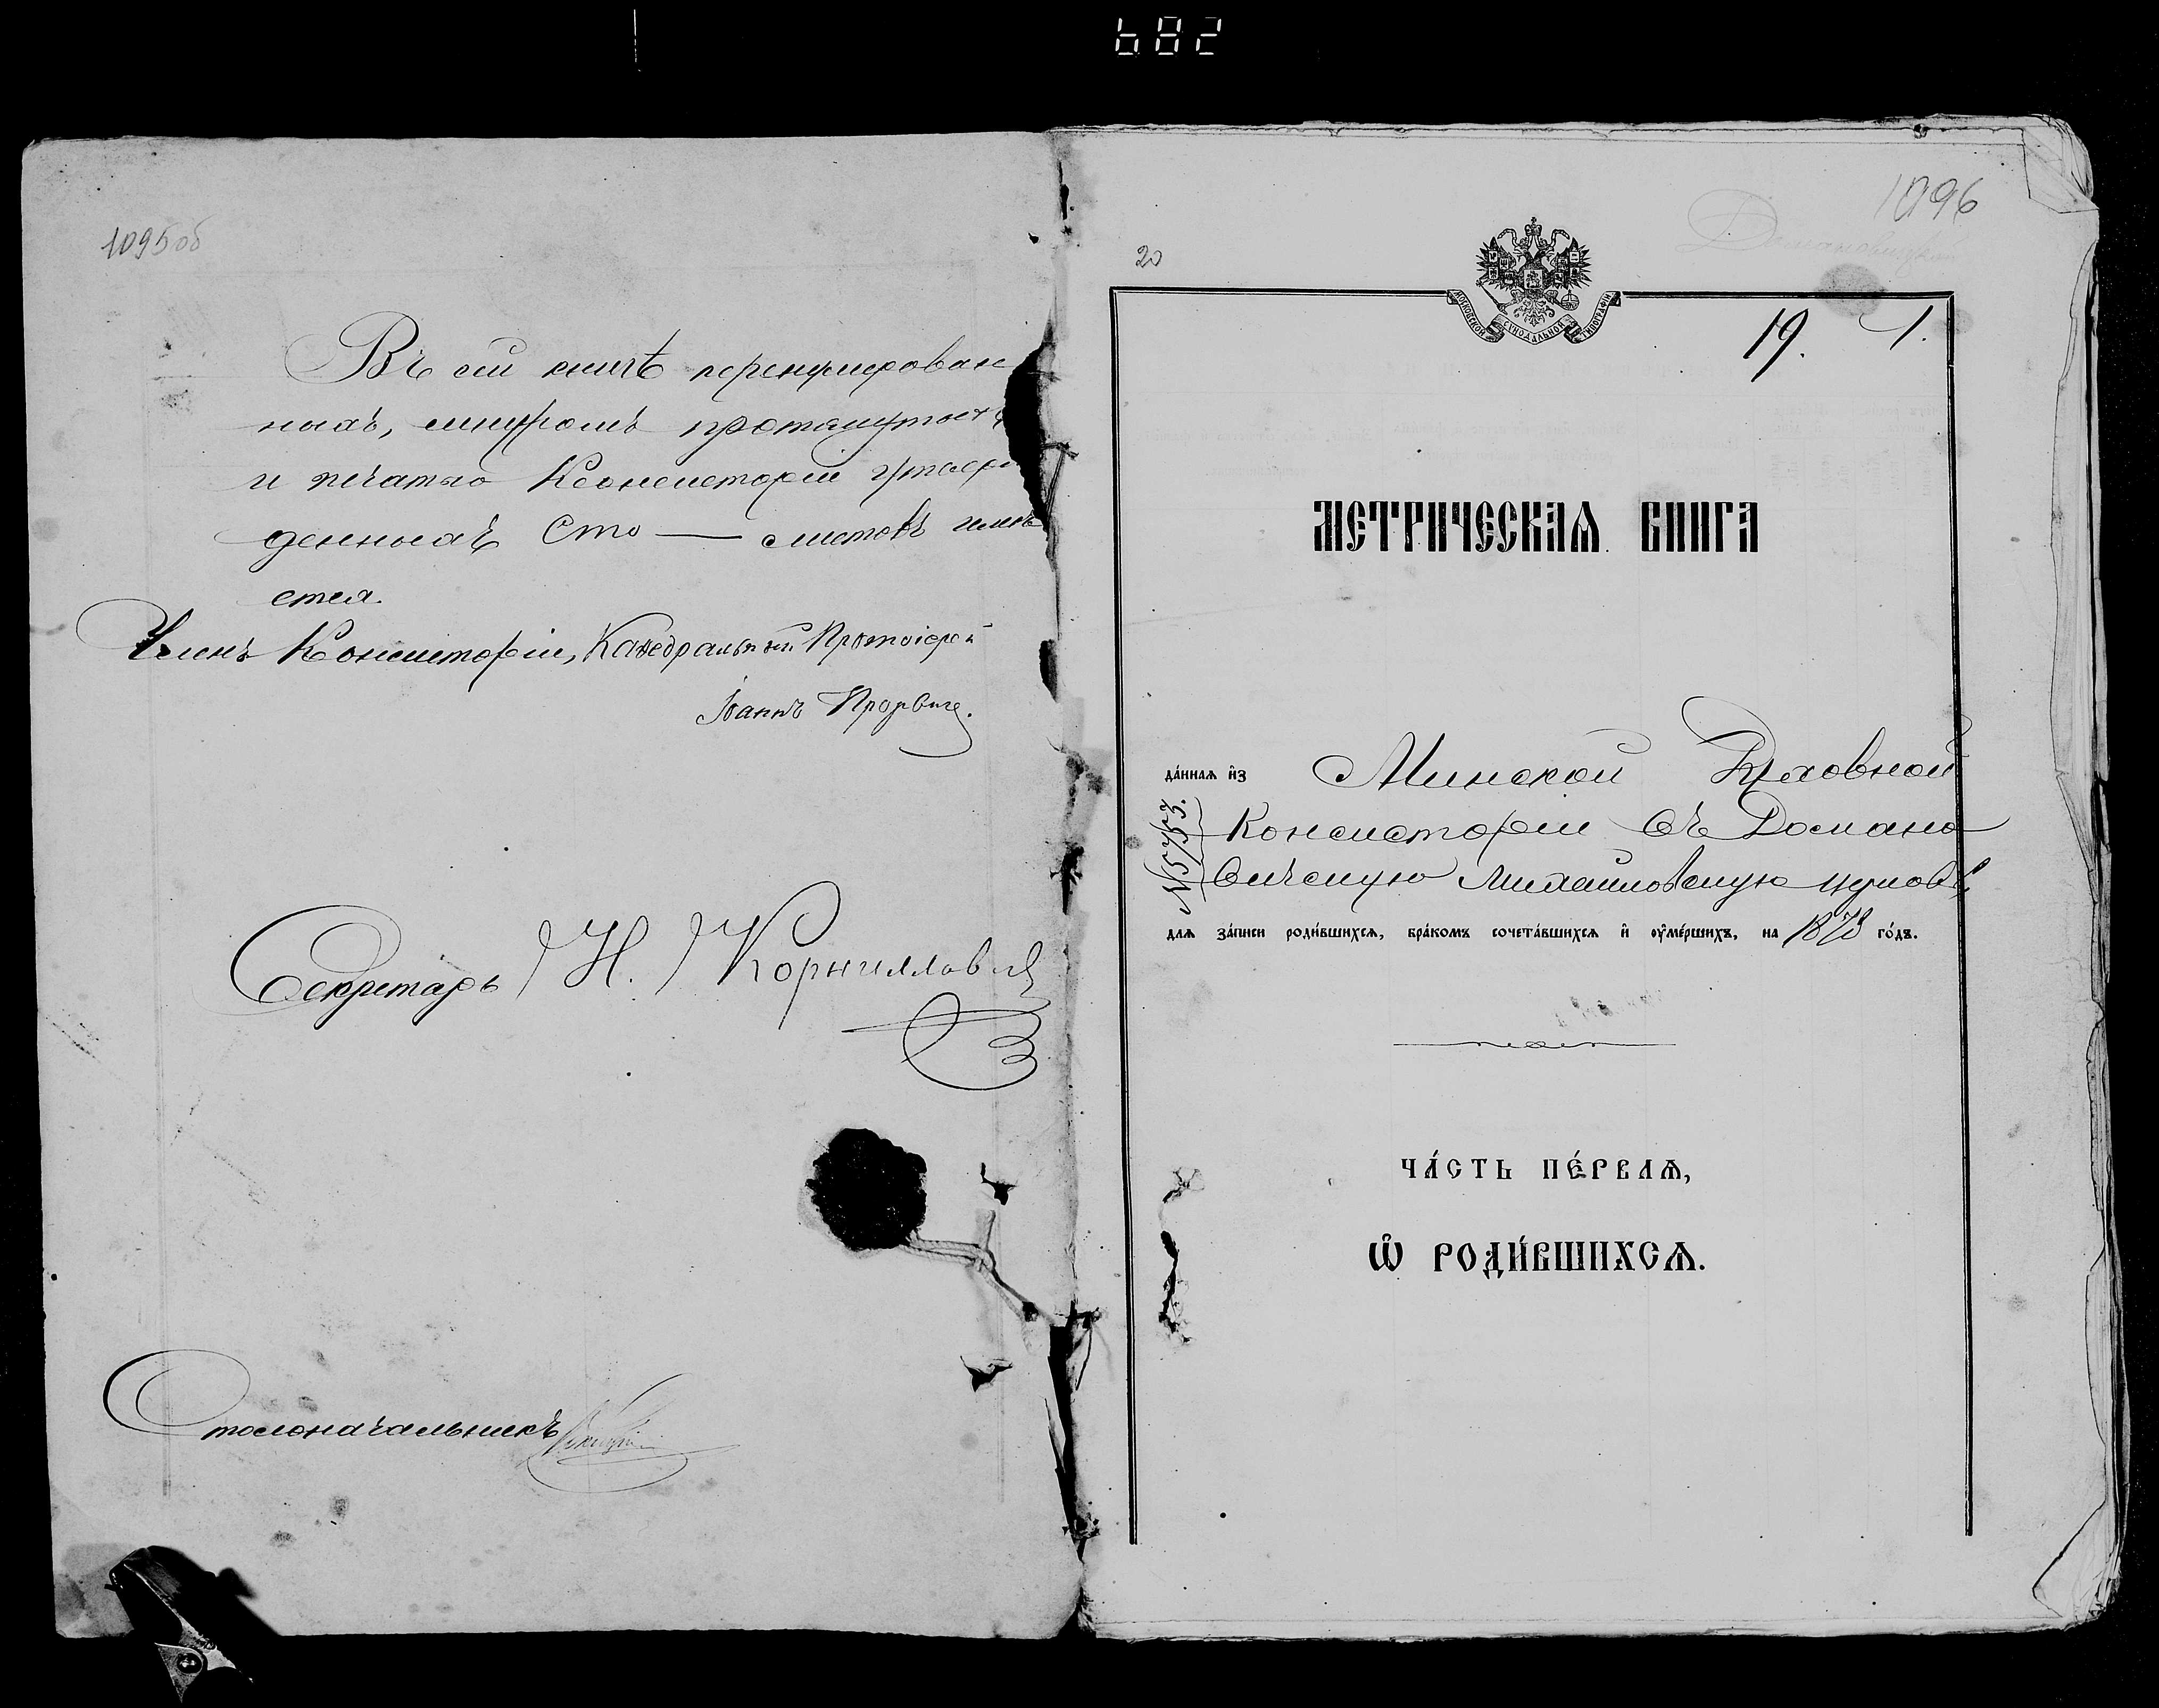 682
1095об
Въ сей книгѣ перенумерован
ныхъ, шнуромъ протянутыхъ
и печатью Консисторіи утвер
денныхъ Сто — листовъ имѣ
ется.
Членъ Консисторіи, Каѳедральный Протоіерей
Іоаннъ
Секретарь Н. Корниллович
Столоначальникъ
1096
20
МОСКОВСКОЙ СѴНОДАЛЬНОЙ ТИПОГРАФІИ
19. 1.
МЕТРИЧЕСКАѦ КНИГА
да́ннаѧ и҆з Минской Духовной
Консисторіи въ Домано
вичскую Михайловскую церковь
№ 5753.
длѧ за́писи роди́вшихсѧ, бра́комъ сочета́вшихсѧ и҆ ᲂу҆ме́ршихъ, на 1878 го́дъ.
ЧА́СТЬ ПЕ́РВАѦ,
Ѡ҆ РОДИ́ВШИХСѦ.